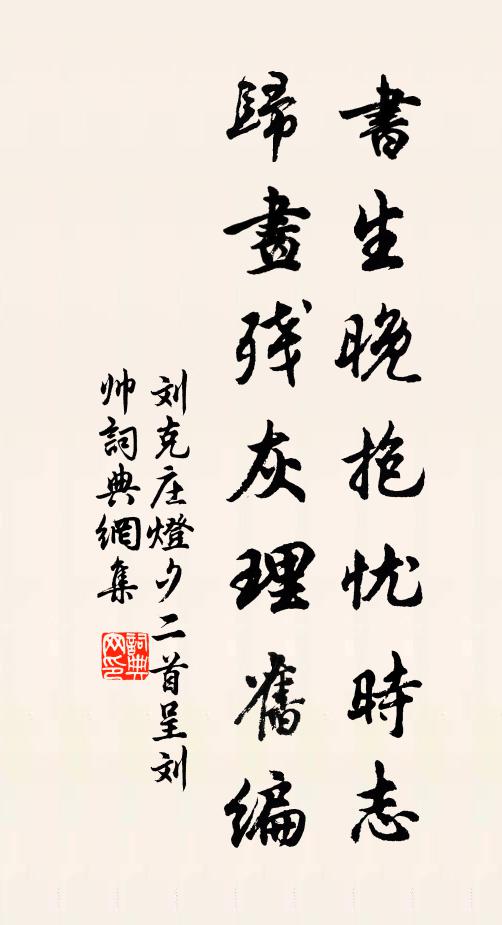 書生晚抱忧時志
歸畫殘灰理舊編
刘克庄燈夕二首呈刘
帅詞典網集
詞典网印